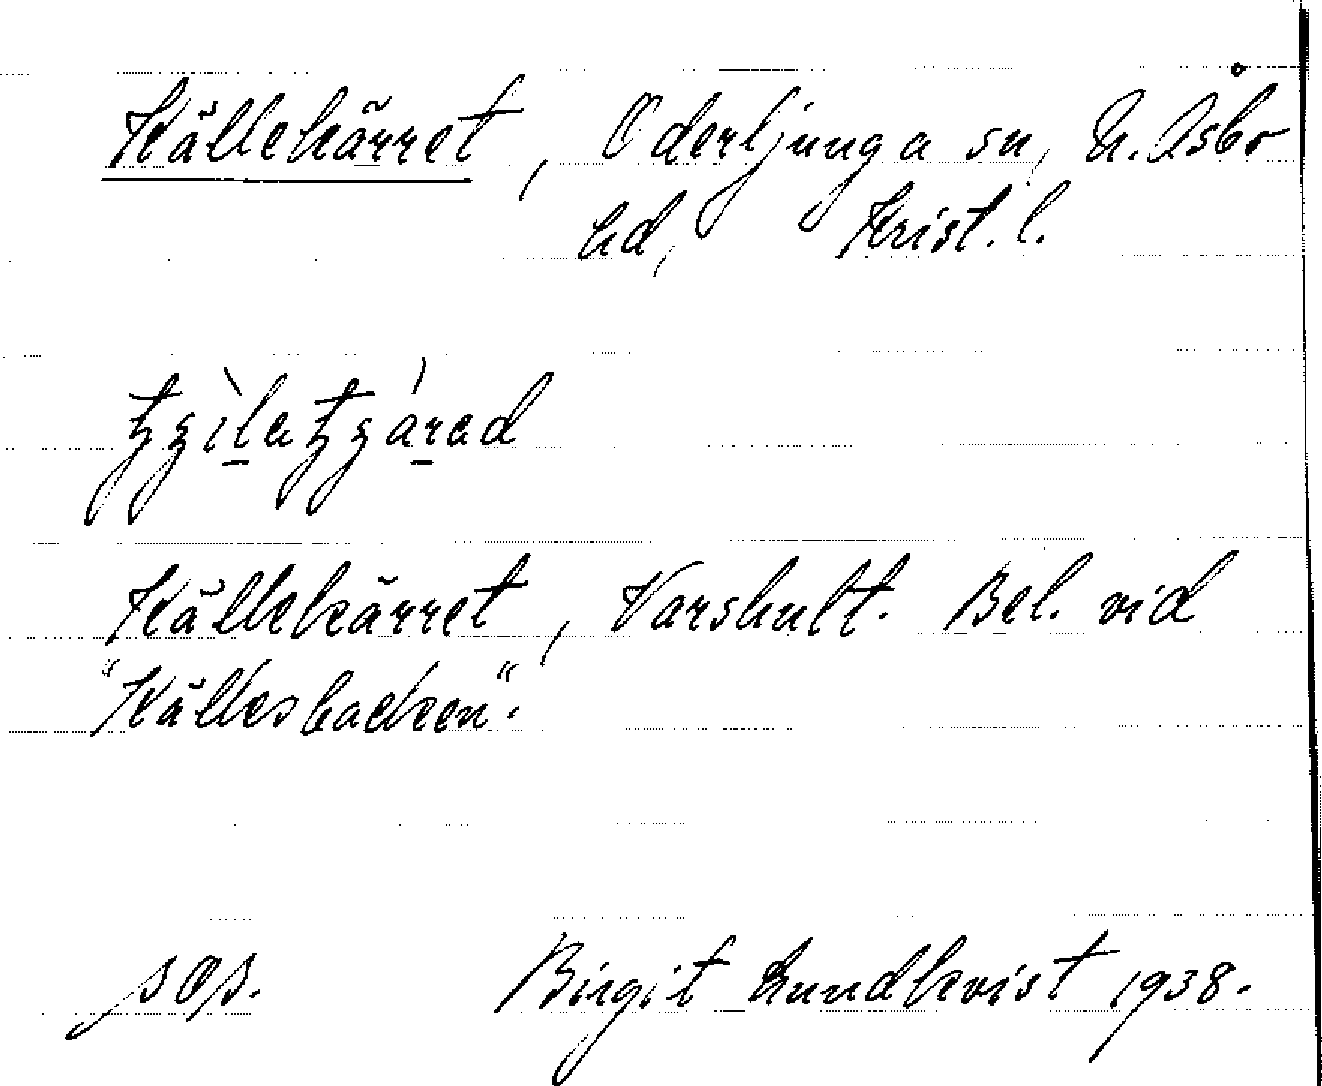 Källekärret, Oderljunga sn, N. Åsbo
hd, Krist. l.
Källekärret, Varshult. Bel. vid
"Källesbacken".
Birgit Lundkvist 1938.